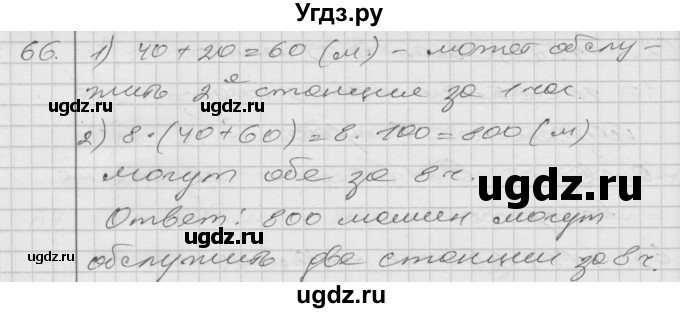 Угдз.ру
66. 1) 40 + 20 = 60 (м) – может обслу-
жить 2я станция за 1 час.
2) 8·(40+60) = 8·100 = 800 (м)
могут обе за 8 ч.
Ответ: 800 машин могут
обслужить две станции за 8 ч.
ugdz.ru
ugdz.ru
ugdz.ru
ugdz.ru
ugdz.ru
ugdz.ru
ugdz.ru
ugdz.ru